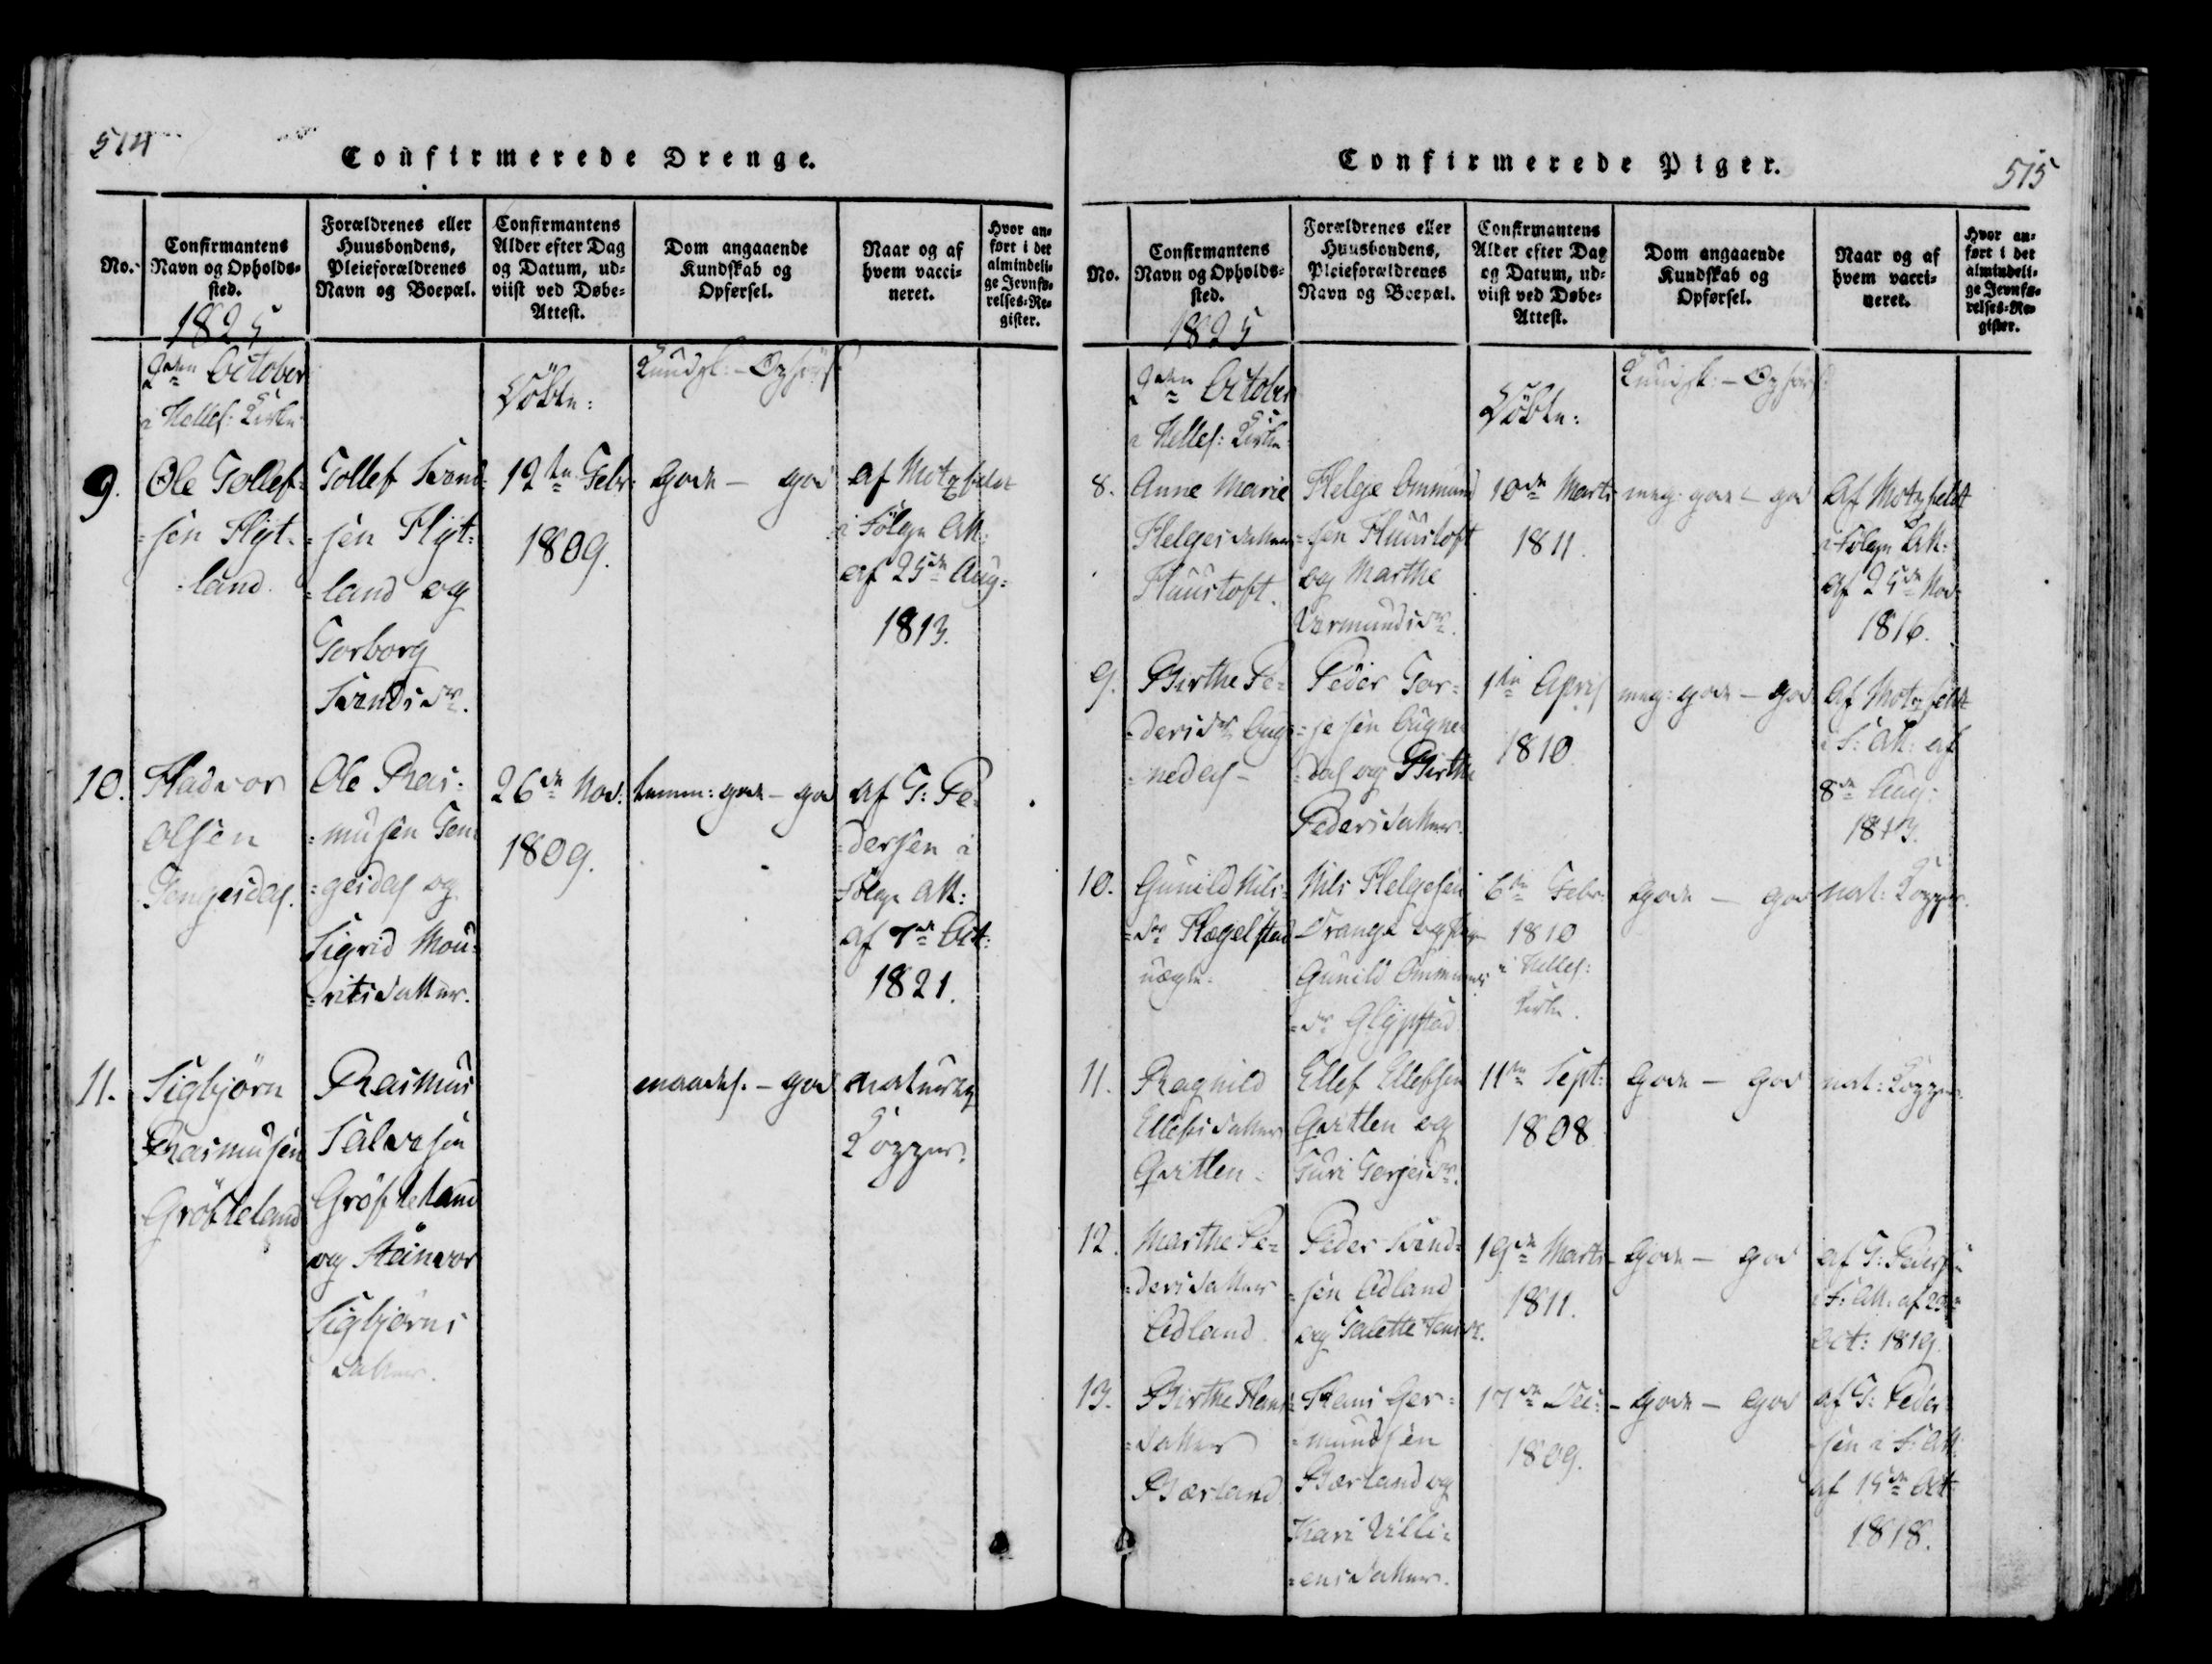 514
Confirmerede Drenge.
No.
Confirmantens
Navn og Opholds-
sted.
Forældrenes eller
Huusbondens,
Pleieforældrenes
Navn og Boepæl.
Confirmantens
Alder efter Dag
og Datum, ud-
viist ved Døbe-
Attest.
Dom angaaende
Kundskab og
Opførsel.
Naar og af
hvem vacci-
neret.
Hvor an-
ført i det
almindeli-
ge Jevnfø-
relses-Re-
gister.
1825
2den October
i Hellel: Kirke
Döbte:
Kundsk: - Opförs:
9.
Ole Tollef=
=sen Hÿt=
=land.
Tollef Svend=
=sen Hÿt=
=land og
Torborg
Svendsdr.
12te Febr:
1809.
gode - god
af Motzfeldt
i Fölge Att:
af 25de Aug:
1813.
10.
Hadvor
Olsen
Tengesdal.
Ole Ras=
=musen Ten=
=gesdal og
Sigrid Mou=
=ritsdatter.
26de Nov:
1809.
temm: gode - god
af T: Pe=
=dersen i
Fölge Att:
af 7de Oct:
1821.
11.
Sigbjörn
Rasmusen
Gröfteland
Rasmus
Salvesen
Gröfteland
og Steinvor
Sigbjörns
datter.
maadel. - god
naturlig
Kopper.
Confirmerede Piger.
515
No.
Confirmantens
Navn og Opholds-
sted.
Forældrenes eller
Huusbondens,
Pleieforældrenes
Navn og Boepæl.
Confirmantens
Alder efter Dag
og Datum, ud-
viist ved Døbe-
Attest.
Dom angaaende
Kundskab og
Opførsel.
Naar og af
hvem vacci-
neret.
Hvor an-
ført i det
almindeli-
ge Jevnfø-
relses-Re-
gister.
1825
2den October
i Hellel: Kirke
Döbte:
Kundsk: - Opförs:
8.
Anne Marie
Helgesdatter
Huustoft.
Helge Ommund
=sen Huustoft
og Marthe
Vermundsdr.
10de Marts
1811.
meg: gode - god
af Motzfeldt
i Fölge Att:
af 25de Nov:
1816.
9.
Birthe Pe=
=dersdr Eug=
=nedal -
Peder Tor=
=jesen Eugne
=dal og Birthe
Pedersdatter.
1te April
1810
meg: gode - god
af Motzfeldt
i F: Att: af
8de Aug:
1813.
10.
Gunild Nils=
=dr Hegelstad
Nils Helgesen
Drange og
Gunild Ommunds
=dr Glÿpstad
6te Febr:
1810
i Hellel:
Kirke.
gode - god
nat: Kopper.
11.
Ragnild
Ellefsdatter
Qvitlen.
Ellef Ellefsen
Qvitlen og
Turi Terjesdr.
11te Sept:
1808.
gode - god
nat: Kopper.
12.
Marthe Pe=
=dersdatter
Edland
Peder Svend=
=sen Edland
og Talette
19de Marts
1811.
gode - god
af T: Peders:
i F: Att: af 29de
Oct: 1819.
13.
Birthe Hans=
=datter
Bærland.
Hans Ger=
=mundsen
Bærland og
Kari Villi=
=ensdatter.
17de Dec:
1809.
gode - god
af T: Peder=
=sen i F: Att:
af 15de Oct:
1818.